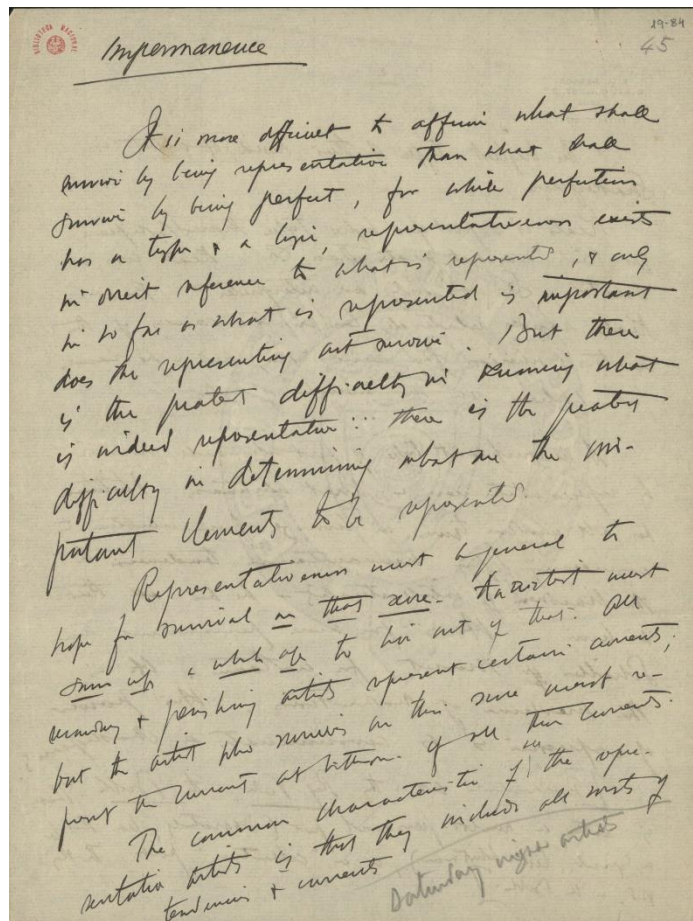 BIBLIOTECA NACIONAL
19-84
45
Impermanence
It is more difficult to affirm what shall
survive by being representative than what shall
survive by being perfect, for while perfection
has a type & a logic, representativeness exists
in direct reference to what is represented, & only
in so far as what is represented is important
does the representing art survive. But there
is the greatest difficulty in knowing what
is indeed representative: there is the greatest
difficulty in determining what are the im-
portant elements to be represented.
Representativeness must be general to
hope for survival on that score. An artist must
sum up a whole age to live out of that. All
secondary & perishing artists represent certain currents;
but the artist who survives on this score must re-
present the current at bottom of all these currents.
The common characteristic of the repre-
sentative artists is that they include all sorts of
tendencies & currents